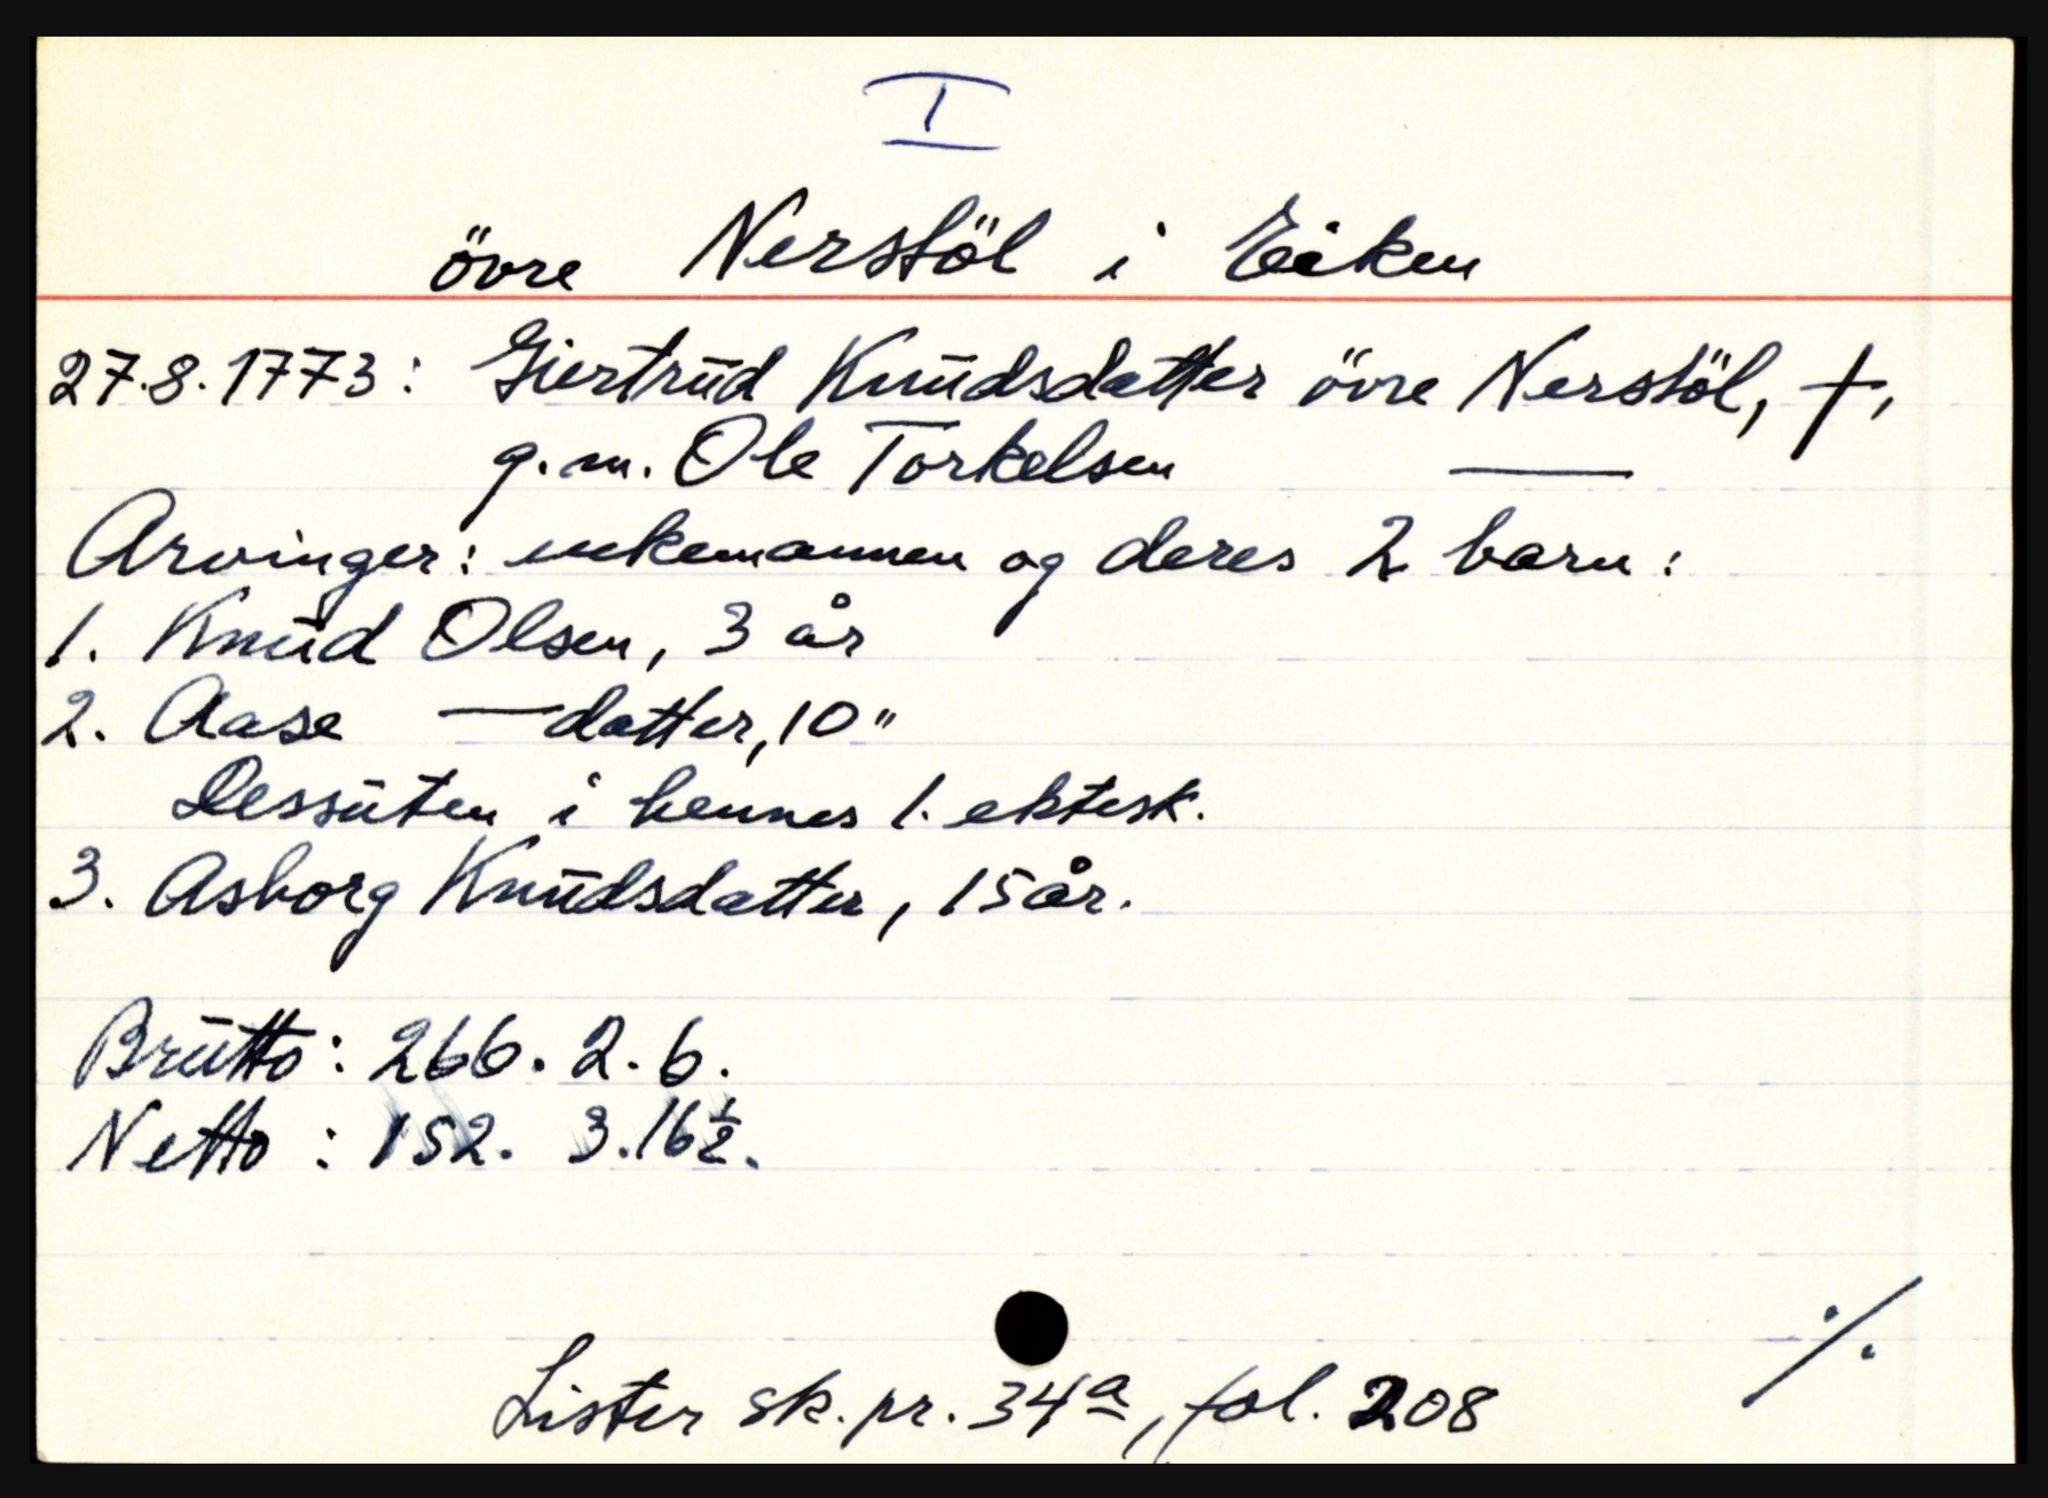 I
övre Nerstöl i Eiken
27.8.1773: Giertrud Knudsdatter övre Nerstöl, †,
g.m. Ole Torkelsen —
Arvinger: enkemannen og deres 2 barn:
1. Knud Olsen, 3 år
2. Aase — datter, 10 "
Dessuten i hennes 1. ektesk.
3. Asborg Knudsdatter, 15 år.
Brutto: 266. 2. 6.
Netto: 152. 3. 16½.
./.
Lister sk. pr. 34a, fol. 208